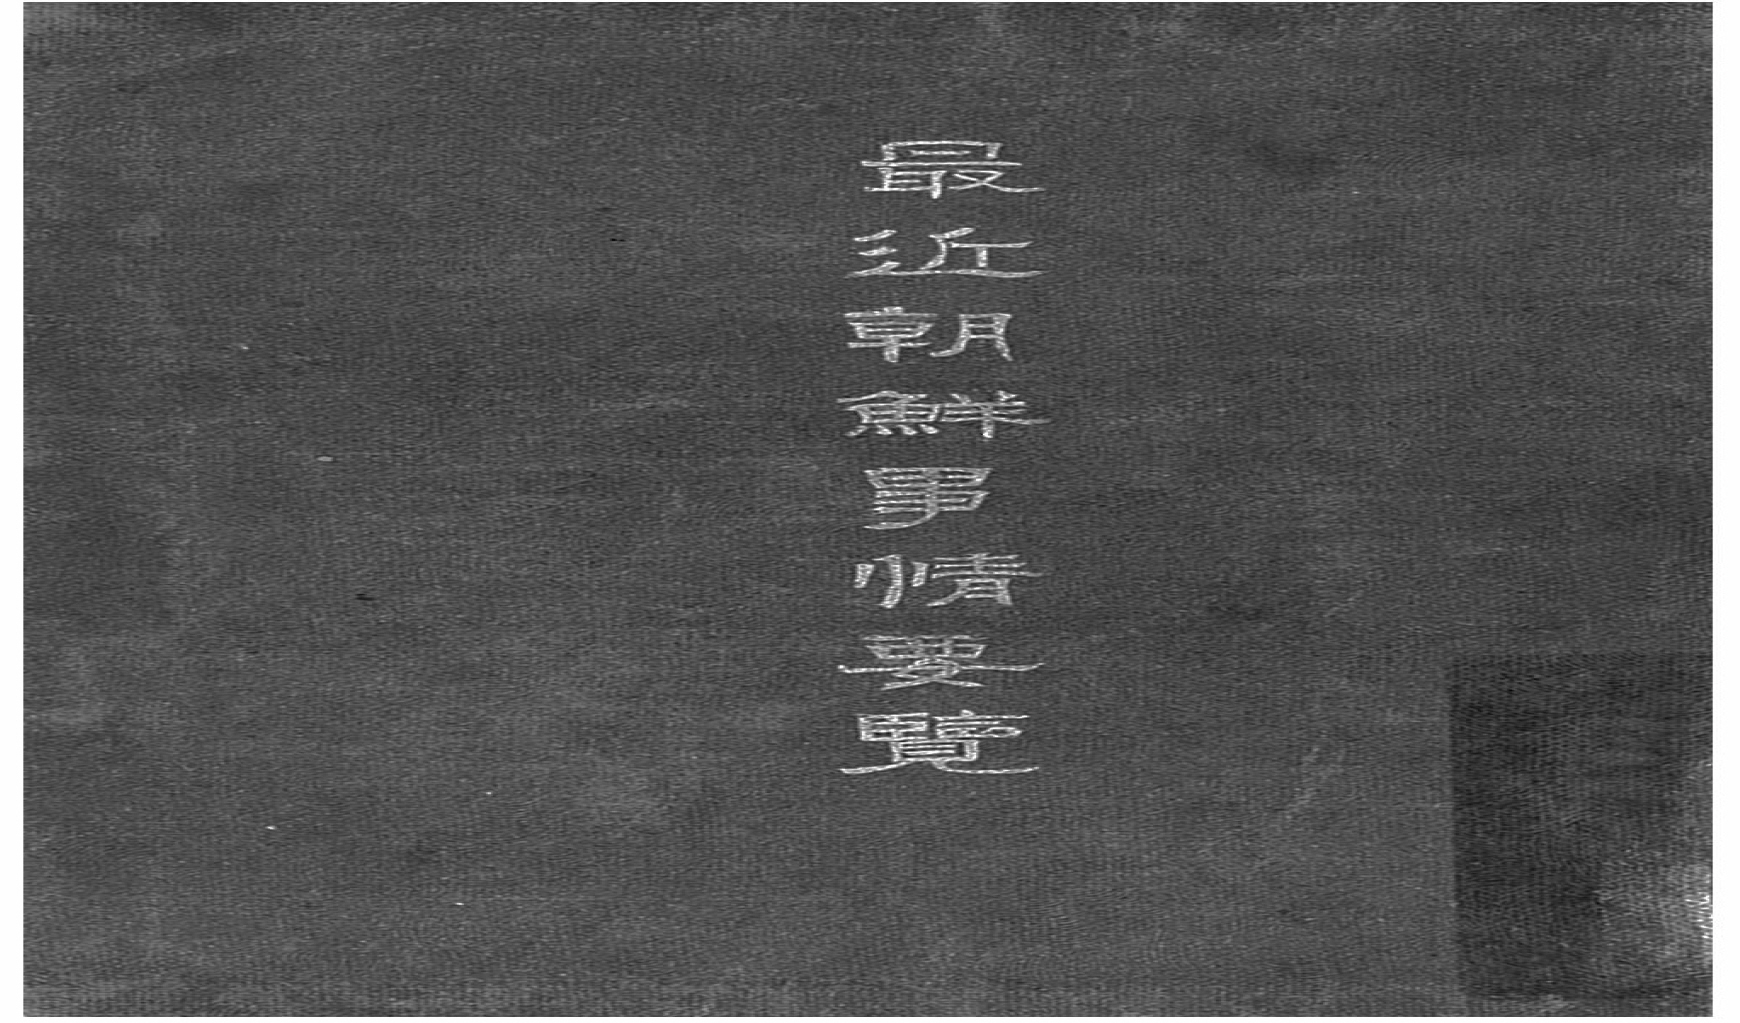 最近朝鮮事情要覽